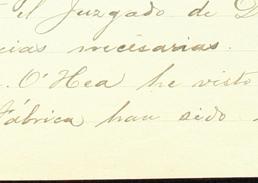 el Juzgado de
cias necesarias.
O'Hea he visto
Fábrica han sido